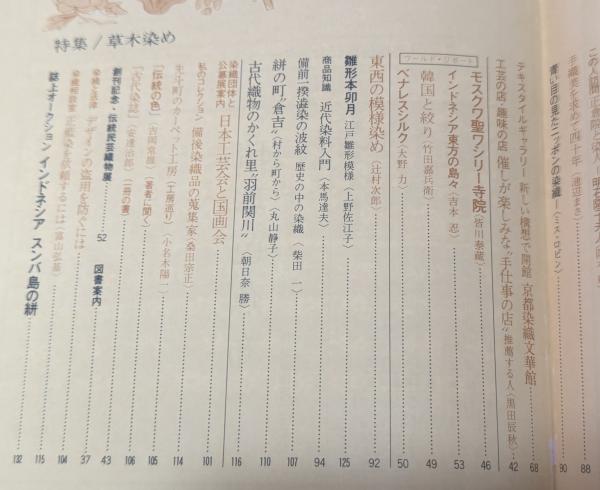 特集/草木染め
この人間正倉院と染
手織美を求めて四十年〈蓮正まさ〉 88
青い目の見たニッポンの染織〈ミス・ロビン〉 90
テキスタイルギャラリー 新しい構想で開館 京都染織文華館 68
工芸の店、趣味の店 催しが楽しみな“手仕事の店”推薦する人〈黒田辰秋〉 42
ワールド・リポート
モスクワ聖ワシリー寺院〈皆川泰蔵〉 46
インドネシア東方の島々〈吉本 忍〉 53
韓国と絞り〈竹田嘉兵衛〉 49
ベナレスシルク〈大野 力〉 50
東西の模様染め〈辻村次郎〉 92
雛形本卯月 江戸雛形模様〈上野佐江子〉 125
商品知識 近代染料入門〈本馬達夫〉 94
備前一揆澁染の波紋 歴史の中の染織〈柴田 一〉 107
絣の町“倉吉”〈村から町から〉〈丸山静子〉 110
古代織物のかくれ里“羽前関川”〈朝日奈 勝〉 116
染織団体と公募展案内 日本工芸会と国画会 101
私のコレクション 備後染織品の蒐集家・桑田宗正
壬生町のカーペット工房〈工房巡り〉〈小名木陽一〉 114
「伝統の色」〈吉岡常雄〉〈著者に聞く〉 105
「古代染法」〈安達治郎〉〈一冊の書〉 106
創刊記念・伝統民芸織物展 52 図書案内 43
染織と法律 デザインの盗用を防ぐには 37
染織相談室 正藍染を依頼するには〈富山弘基〉 104
誌上オークション インドネシア スンバ島の絣 115
132